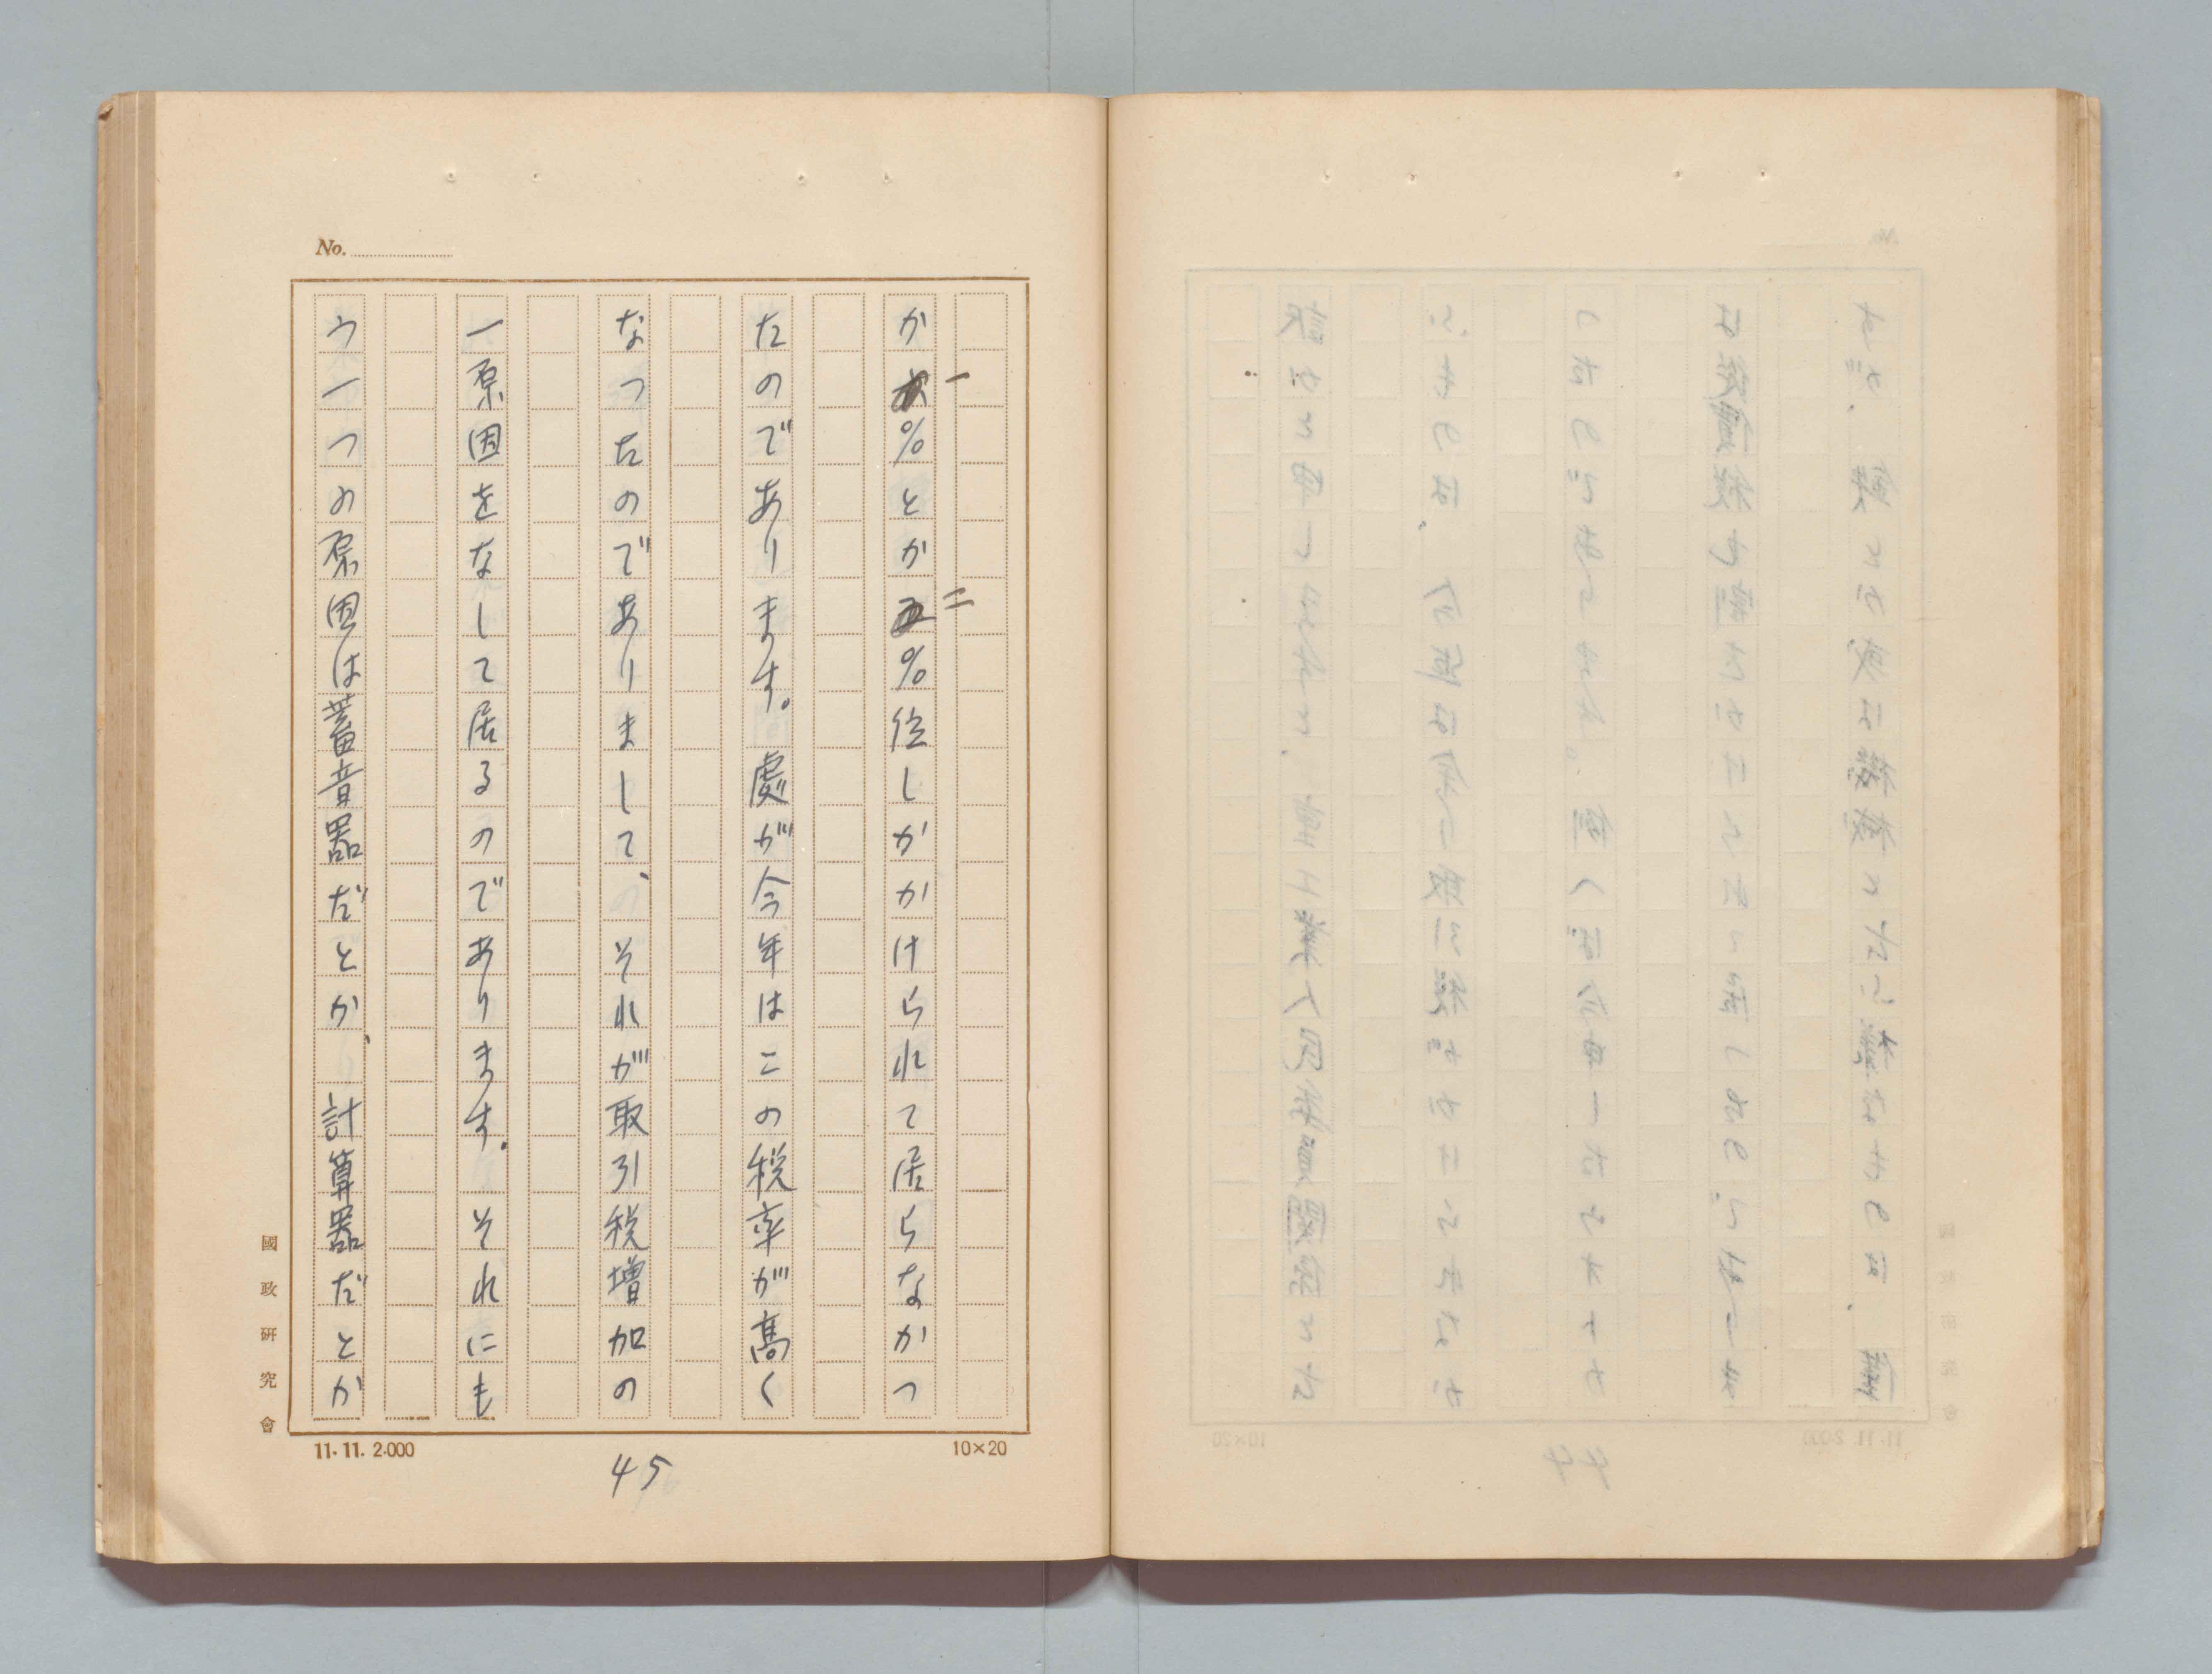 No.
か一%とか二%位しかかけられて居らなかつ
たのであります。處が今年はこの税率が高く
なつたのでありまして、それが取引税増加の
一原因をなして居るのであります。それにも
う一つの原因は蓄音器だとか、計算器だとか
國政研究會
11.11. 2.000
45
10×20